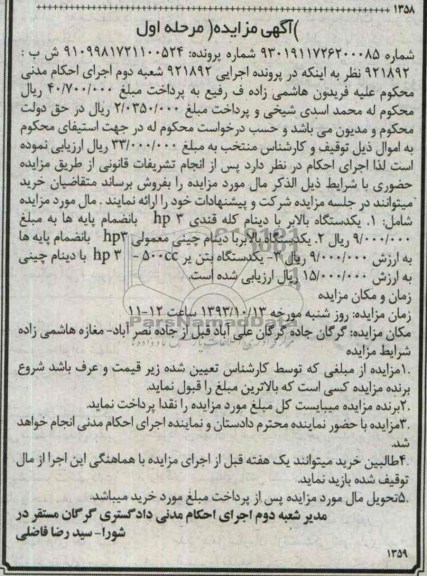 ۱۳۵۸
)آگهی مزایده( مرحله اول
شماره ۹۳۰۱۹۱۱۷۲۶۲۰۰۰۸۵ شماره پرونده: ۹۱۰۹۹۸۱۷۲۱۱۰۰۵۲۴ ش ب :
۹۲۱۸۹۲ نظر به اینکه در پرونده اجرایی ۹۲۱۸۹۲ شعبه دوم اجرای احکام مدنی
محکوم علیه فریدون هاشمی زاده ف رفیع به پرداخت مبلغ ۴۰/۷۰۰/۰۰۰ ریال
محکوم له محمد اسدی شیخی و پرداخت مبلغ ۲/۰۳۵۰/۰۰۰ ریال در حق دولت
محکوم و مدیون می باشد و حسب درخواست محکوم له در جهت استیفای محکوم
به اموال ذیل توقیف و کارشناس منتخب به مبلغ ۳۳/۰۰۰/۰۰۰ ریال ارزیابی نموده
است لذا اجرای احکام در نظر دارد پس از انجام تشریفات قانونی از طریق مزایده
حضوری با شرایط ذیل الذکر مال مورد مزایده را بفروش برساند متقاضیان خرید
میتوانند در جلسه مزایده شرکت و پیشنهادات خود را ارائه نمایند . مال مورد مزایده
شامل: ۱. یکدستگاه بالابر با دینام کله قندی ۳ hp بانضمام پایه ها به مبلغ
۹/۰۰۰/۰۰۰ ریال ۲. یکدستگاه بالابربا دینام چینی معمولی hp۳ بانضمام پایه ها
به ارزش ۹/۰۰۰/۰۰۰ ریال ۳- یکدستگاه بتن پر ۵۰۰cc - ۳ hp با دینام چینی
به ارزش ۱۵/۰۰۰/۰۰۰ ریال ارزیابی شده است.
زمان و مکان مزایده
زمان مزایده: روز شنبه مورخه ۱۳۹۳/۱۰/۱۳ ساعت ۱۲-۱۱
مکان مزایده: گرگان جاده گرگان علی آباد قبل از جاده نصر آباد- مغازه هاشمی زاده
شرایط مزایده
.۱مزایده از مبلغی که توسط کارشناس تعیین شده زیر قیمت و عرف باشد شروع
برنده مزایده کسی است که بالاترین مبلغ را قبول نماید.
.۲برنده مزایده میبایست کل مبلغ مورد مزایده را نقدا پرداخت نماید.
.۳مزایده با حضور نماینده محترم دادستان و نماینده اجرای احکام مدنی انجام خواهد
شد.
.۴طالبین خرید میتوانند یک هفته قبل از اجرای مزایده با هماهنگی این اجرا از مال
توقیف شده بازید نماید.
.۵تحویل مال مورد مزایده پس از پرداخت مبلغ مورد خرید میباشد.
مدیر شعبه دوم اجرای احکام مدنی دادگستری گرگان مستقر در
شورا- سید رضا فاضلی
۱۳۵۹